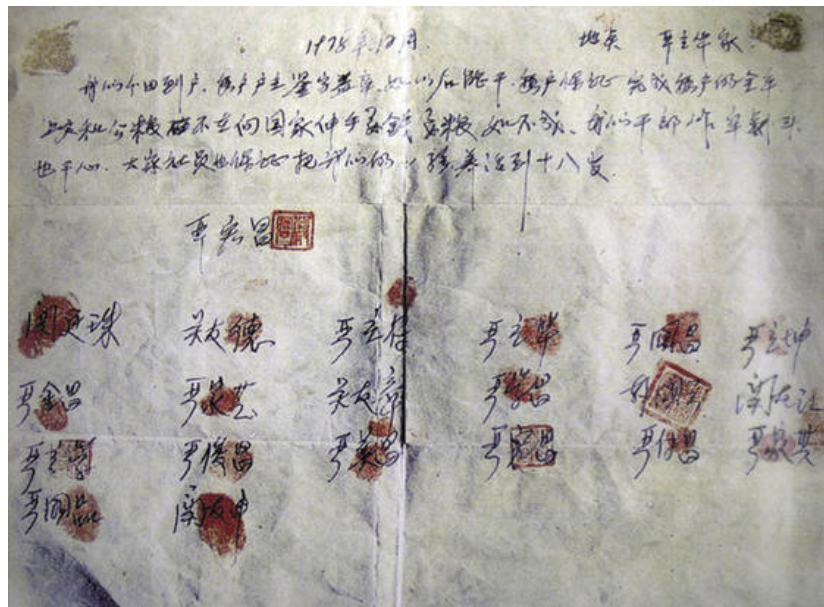 1978年12月. 地点 严立华家.
我们分田到户,每户户主签字盖章,如以后能干,每户保证完成每户的全年
上交和公粮不在向国家伸手要钱要粮,如不成,我们干部作牢
也干心,大家社员也保证把我们的小孩养活到十八岁.
严宏昌
关廷珠 关友德 严立符 严立华 严国昌 严立坤
严金昌 严家芝 关友章 严学昌 韩国云 关友江
严立学 严俊昌 严美昌 严宏昌 严付昌 严家其
严国品 关友申